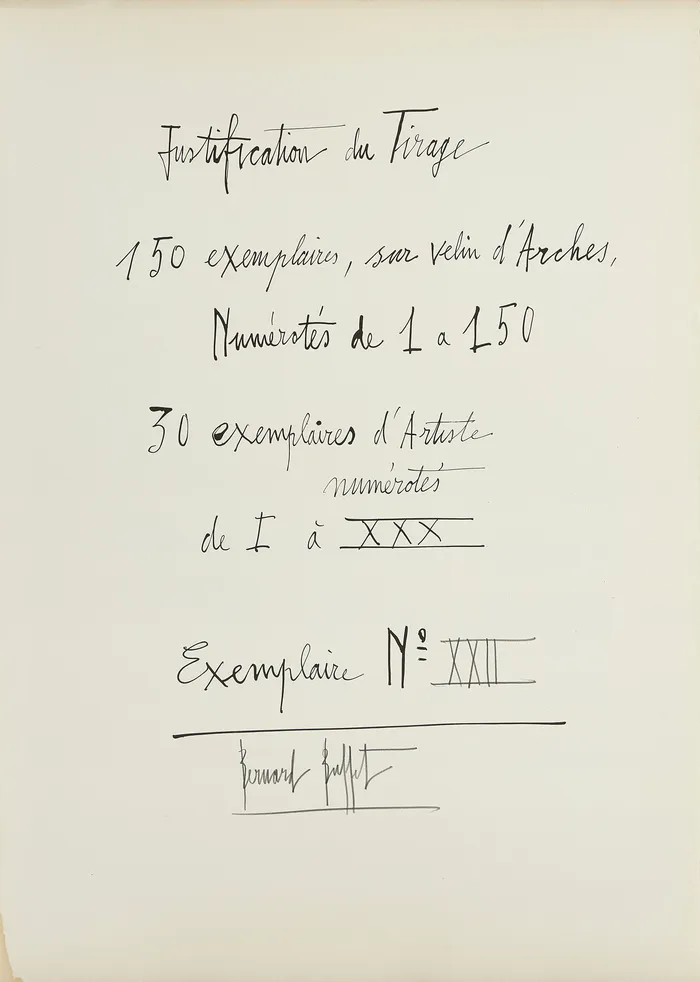 Justification du Tirage
150 exemplaires, sur velin d'Arches,
Numérotés de 1 a 150
30 exemplaires d'Artiste
numérotés
de I à XXX
Exemplaire Nº XXII
Bernard Buffet